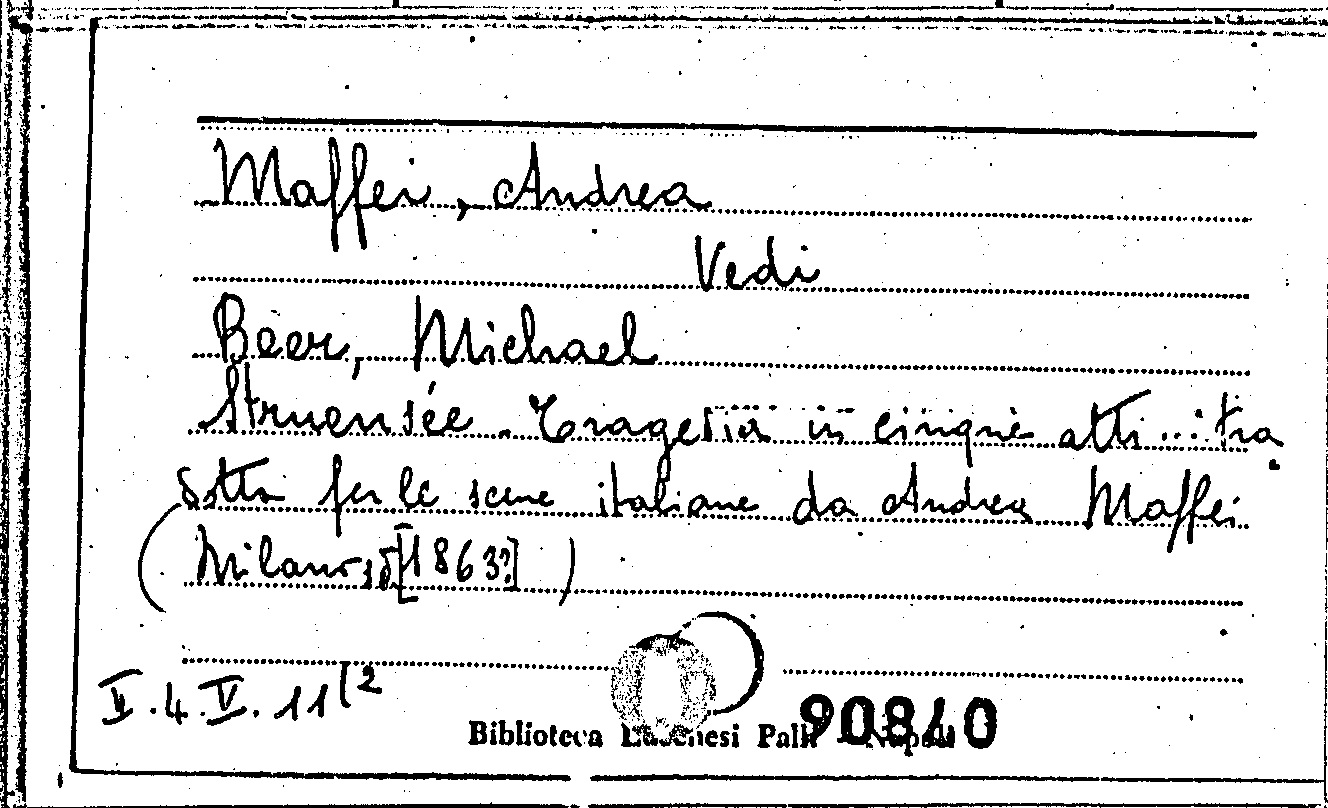 Maffei, Andrea
Vedi
Beer, Michael
Struensée. Tragedia in cinque atti...: tra
dotta per le scene italiane da Andrea Maffei
Milano, s.d. [1863?] )
II.4.V.11(2
Biblioteca Lucchesi Palli - Napoli
90840